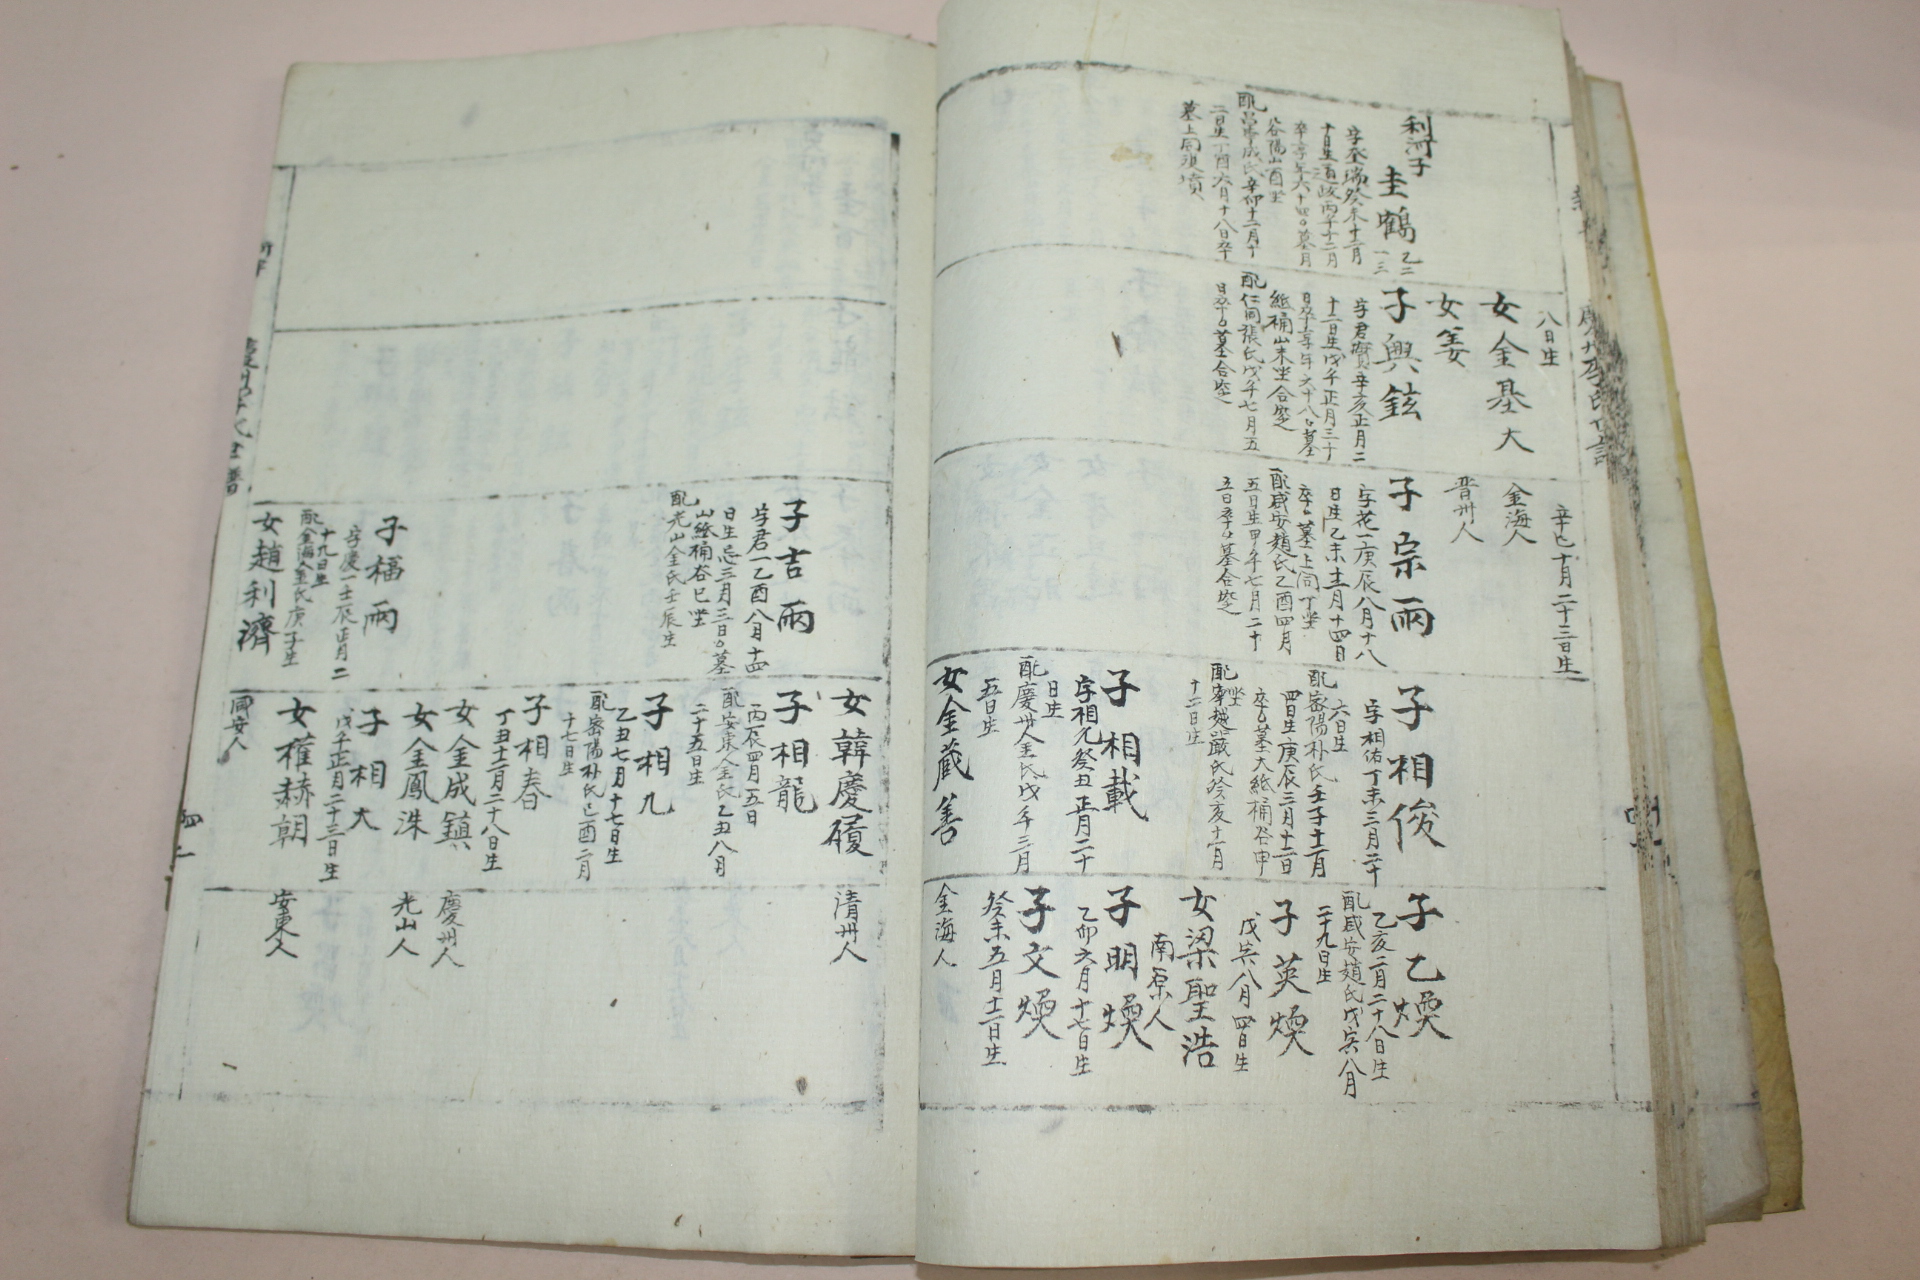 利河子
圭鶴
字登瑞癸未十二月
十日生通政丙午十二月
卒享年六十四墓月
谷陽山酉坐
配昌寧成氏辛卯十二月十
二日生丁酉六月十八日卒
墓上同雙墳
八日生
女金基大
女姜
子興鉉
字君寶辛亥正月二
十二日生戊午正月三十
日卒享年六十八墓
紙桶山未坐合窆
配仁同張氏戊午七月五
日卒墓合窆
辛巳十月二十三日生
金海人
晋州人
子宗雨
字花一庚辰八月十八
日生乙未十二月十四日
卒墓上同丁坐
配咸安趙氏乙酉四月
五日生甲午七月二十
五日卒墓合窆
子相俊
字相佑丁未三月二十
六日生
配密陽朴氏壬子十二月
四日生庚辰三月十二日
卒墓大紙桶谷申
坐
配寧越嚴氏癸亥十二月
十二日生
子相載
字相允癸丑正月二十
日生
配慶州金氏戊午三月
五日生
女金蔵善
子乙煥
乙亥二月二十八日生
配咸安趙氏戊寅八月
二十九日生
子英煥
戊寅八月四日生
女梁聖浩
南原人
子明煥
乙卯六月十七日生
子文煥
癸未五月十二日生
金海人
子吉雨
字君一乙酉八月十四
日生忌三月三日墓
山紙桶谷巳坐
配光山金氏壬辰生
子福雨
字慶一壬辰正月二
十九日生
配金海金氏庚子生
女趙利濟
女韓慶履
子相龍
丙辰四月五日
配安東金氏乙丑八月
二十五日生
子相九
乙丑七月十七日生
配密陽朴氏己酉二月
十七日生
子相春
丁丑十二月二十八日生
女金成鎮
女金鳳洙
子相大
戊午正月二十三日生
女權赫朝
咸安人
清州人
慶州人
光山人
安東人
慶州李氏世譜
四一